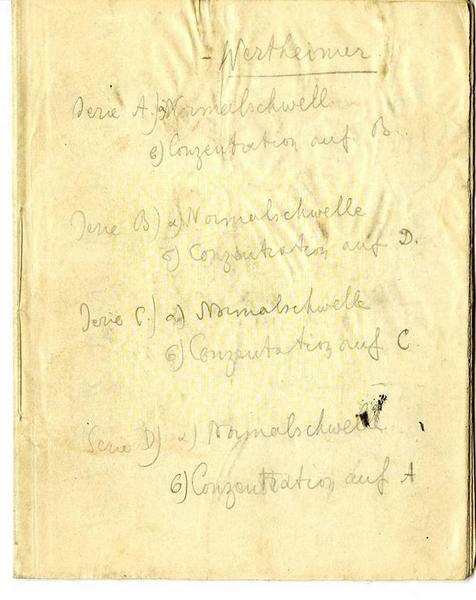 - Wertheimer
Serie A.) a) Normalschwell
b) Conzentration auf B.
Serie B) a) Normalschwelle
b) Conzentration auf D.
Serie C.) a) Normalschwelle
b) Conzentation auf C
Serie D) a) Normalschwelle
b) Conzentration auf A